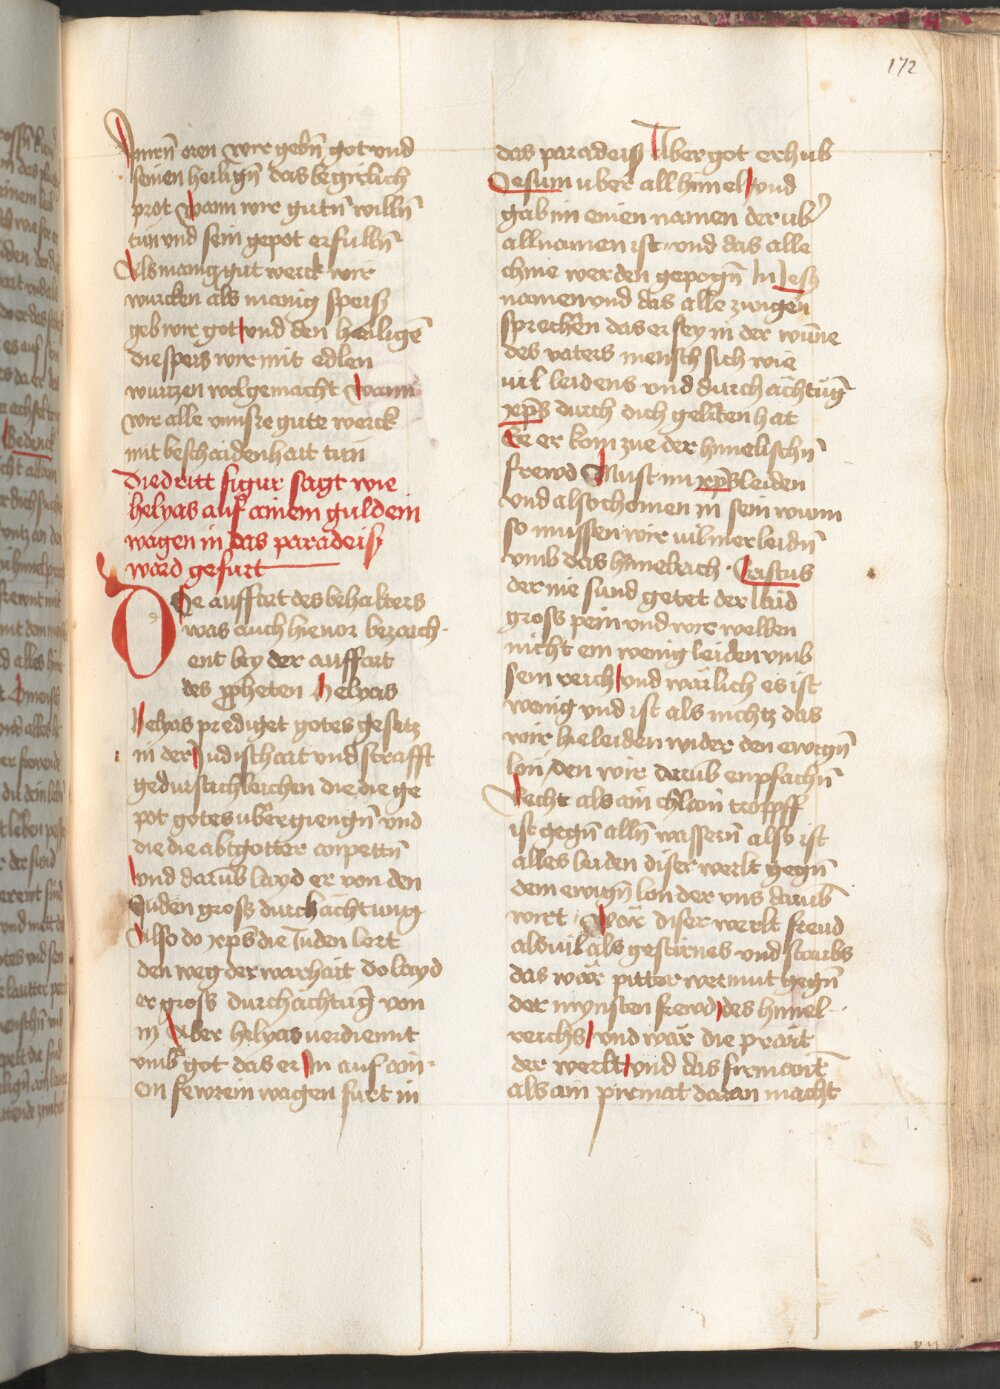 172
Inneren oren wir gebn̄ got vnd
seinen heilign̄ das begirlich
prot wann wir gutn̄ willn̄
tun vnd sein gepot erfulln̄
Als manig gut werck wir
wurcken als manig speiß
geb wir got vnd den heiligē
die speis wir mit edlen
wurtzen wolgemacht Wann
wir alle vnnsre gute werck
mit beschaidenhait tun
Die dritt figur sagt wie
helyas auf ainem guldein
wagen in das paradeiß
ward gefurt
Die auffart des behalters
was auch hieuor bezaich
ent bey der auffart
des ppheten helyas
Helyas prediget gotes gesetz
in der Judischait vnd strafft
gedurstichleichen die die ge
pot gotes vbergiengn̄ vnd
die die abtgotter anpettn̄
vnd darūb layd er von den
Juden gross durchachtung
Also do xp̄s die Juden lert
den weg der warhait do layd
er gross durchachtūg von
in Aber helyas verdiennt
vmb got das er In auf ain
en fewrein wagen furt in
das paradeiß Vber got erhub
Jesum vber all himel vnd
gab im einen namen der vbʼ
all namen ist vnd das alle
chnie werden gepogn̄ In Jesu
namen vnd das alle zungen
sprechen das er sey in der wūne
des vaters mensch sich wie
vil leidens vnd durchachtūg
xp̄s durch dich geliten hat
Ee er kom zue der himelischn̄
frewd Must nu xp̄s leiden
vnd also chomen in sein wunn
so mussen wir vil mer leidn̄
vmb das himelrach Cristus
der nie sund getet der laid
gross pein vnd wir wellen
nicht ein wenig leiden vmb
sein reich vnd warlich es ist
wenig vnd ist als nichtz das
wir hie leiden wider den ewign̄
lon den wir darūb enpfachn̄
Recht als ain chlain tropff
ist gegn̄ alln̄ wassern̄ also ist
alles laiden diser werlt gegn̄
dem ewign̄ lon der vns darūb
wirt wär diser werlt freud
alsuil als gestirnes vnd staubs
das wär pitter wermut gegn̄
der mynsten frewd des himel
reichs vnd wär die prait
der werlt vnd das firmamēt
als ain pirmat daran macht